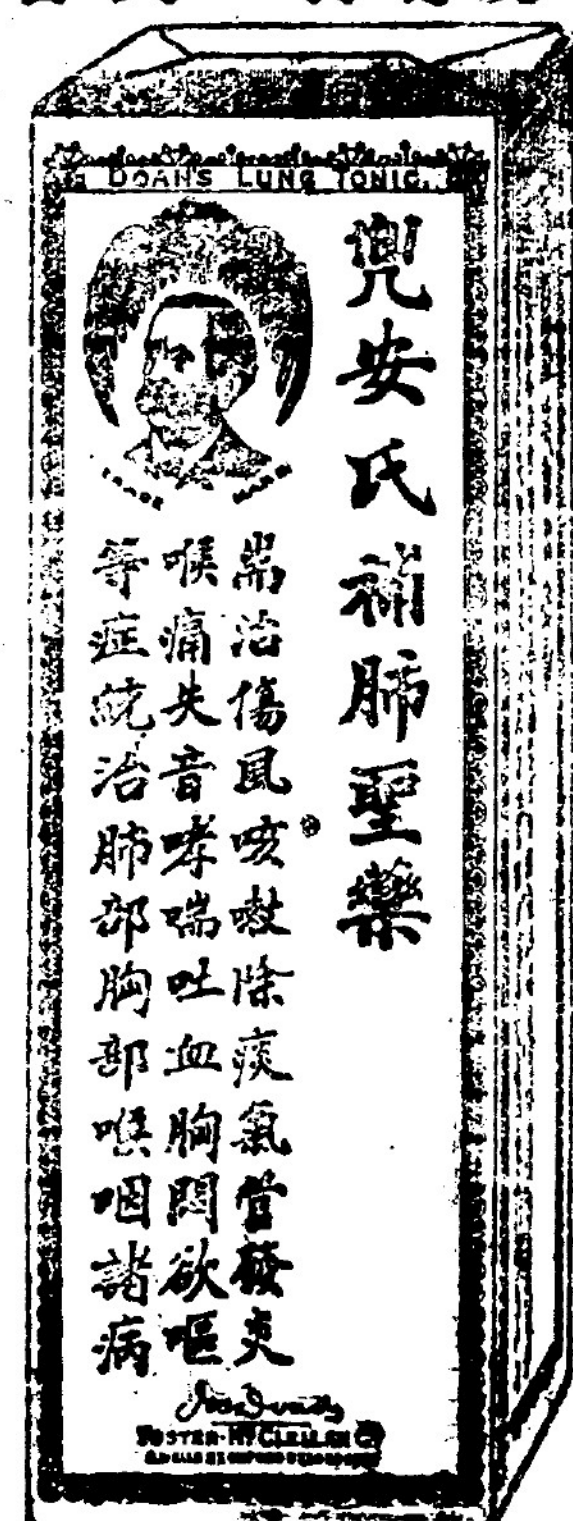 DOAN'S LUNG TONIC.
兜安氏補肺聖藥
TRADE MARK
耑治傷風咳嗽除痰氣管發炎
喉痛失音哮喘吐血胸悶欲嘔
等症統治肺部胸部喉咽諸病
FOSTER-McCLELLAN Co